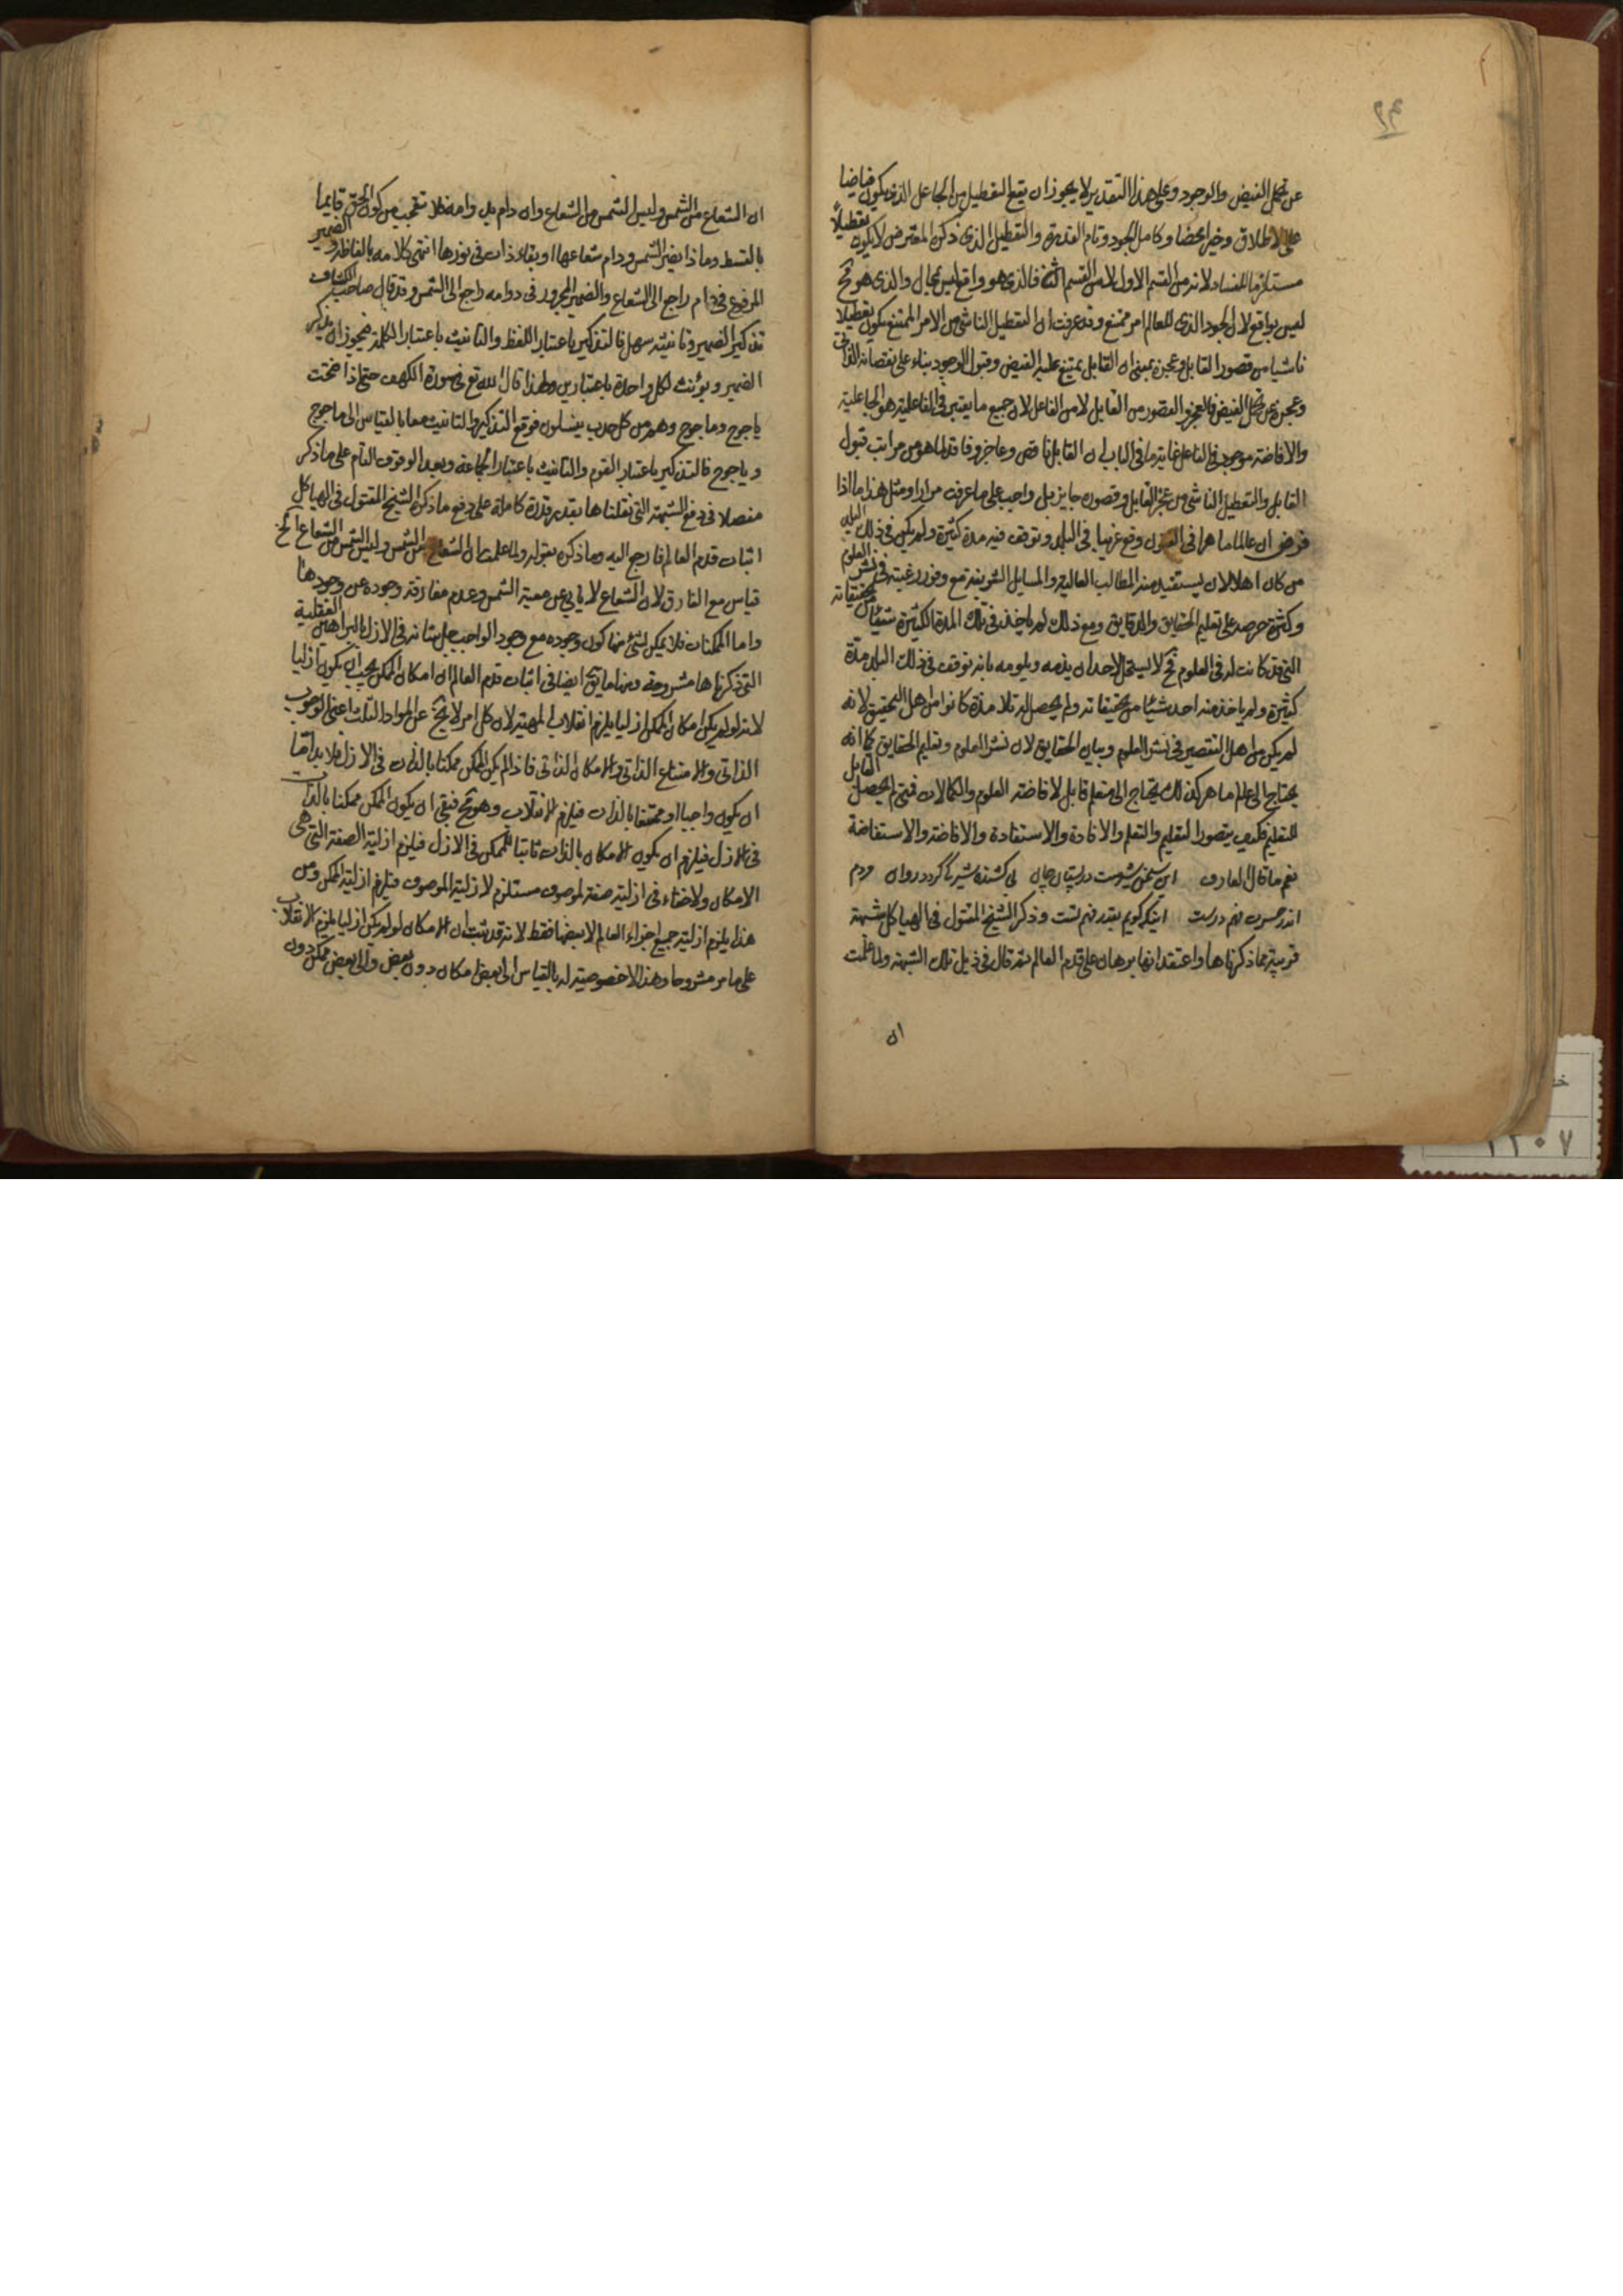 عن تحمل الفيض والوجود وعلى هذا التقدير لا يجوز ان يقع التعطيل من الجاعل الذى يكون فياضا
على الاطلاق وخيرا محضا وكامل الجود وتام القدرة والتعطيل الذى ذكره المعترض لا يكون تعطيلاً
مستلزما للفساد لانه من القسم الاول لا من القسم الثانى فالذى هو واقع ليس بمحال والذى هو مح
ليس بواقع لان الجود الذى للعالم امر ممتنع وقد عرفت ان التعطيل الناشى من الامر الممتنع يكون تعطيلا
ناشيا من قصور القابل وعجزه بمعنى ان القابل يمتنع عليه الفيض وقبول الوجود بناء على نقصانه الذاتى
وعجزه عن تحمل الفيض فالعجز والقصور من القابل لا من الفاعل لان جميع ما يعتبر فى الفاعلية هو الجاعلية
والافاضة موجود فى الفاعل غاية ما فى الباب ان القابل ناقص وعاجز وفاقد لما هو من مراتب قبول
القابل والتعطيل الناشى من عجز القابل وقصوره جايز بل واجب على ما عرفت مرارا ومثل هذا ما اذا
فرض ان عالما ماهرا فى الفنون وقع غريبا فى البلد وتوقف فيه مدة كثيرة ولم يكن فى ذلك البلد
من كان اهلا لان يستفيد منه المطالب العالية والمسايل الشريفة مع وفور رغبته فى نشر العلوم
وكثرة حرصه على تعليم الحقايق والدقايق ومع ذلك لم ياخذ فى تلك المدة الكثيرة شيئا من تحقيقاته
التى قد كانت له فى العلوم فح لا يستحل لاحد ان يذمه ويلومه بانه توقف فى ذلك البلد مدة
كثيرة ولم ياخذ منه احد شيئا من تحقيقاته ولم يحصل له تلامذة كانوا من اهل التحقيق لانه
لم يكن من اهل التقصير فى نشر العلوم وبيان الحقايق لان نشر العلوم وتعليم الحقايق كما انه
يحتاج الى علم ماهر كذلك يحتاج الى متعلم قابل لافاضة العلوم والكمالات فمتى لم يحصل القابل
للتعليم فكيف يتصور التعليم والتعلم والافادة والاستفادة والافاضة والاستفاضة
نعم ما قال العارف اين سخن شيرست در پستان جان بى كشنده شير كى گردد روان مردم
اندر حسرت فهم درست اينكه گويم بقدر فهم تست وذكر الشيخ المقتول فى الهياكل شبهة
قريبة مما ذكرناها واعتقد انها برهان على قدم العالم ثم قال فى ذيل تلك الشبهة ولما علمت
ان
ان الشعاع من الشمس وليس الشمس من الشعاع وان دام بدوامه فلا تتعجب من كون الحق قايما
بالقسط وماذا يضير الشمس ودام شعاعها او بقاء ذات فى نورها انتهى كلامه بالفاظه والضمير
المرفوع فى دام راجع الى الشعاع والضمير المجرور فى دوامه راجع الى الشمس وقد قال صاحب الكشاف
تذكير الضمير وتانيثه سهل فالتذكير باعتبار اللفظ والتانيث باعتبار الكلمة فيجوز ان يذكر
الضمير ويؤنث لكل واحدة باعتبارين ولهذا قال الله تع فى سورة الكهف حتى اذا فتحت
ياجوج وماجوج وهم من كل حدب ينسلون فوقع التذكير والتانيث معا بالقياس الى ماجوج
وياجوج فالتذكير باعتبار القوم والتانيث باعتبار الجماعة وبعد الوقوف التام على ما ذكر
مفصلا فى دفع الشبهة التى نقلناها يقدر قدرة كاملة على دفع ما ذكره الشيخ المقتول فى الهياكل
اثبات قدم العالم فارجع اليه وما ذكره بقوله ولما علمت ان الشعاع من الشمس وليس الشمس من الشعاع الخ
قياس مع الفارق لان الشعاع لا يابى عن معية الشمس وعدم مفارقة وجوده عن وجودها
واما الممكنات فلا يمكن لشئ منها كون وجوده مع وجود الواجب جل شانه فى الازل بالبراهين العقلية
التى ذكرناها مشروحة ومنها ما يق ايضا فى اثبات قدم العالم ان امكان الممكن يجب ان يكون ازليا
لانه لو لم يكن امكان الممكن ازليا يلزم انقلاب المهية لان كل امر لا يخ عن المواد الثلث اعنى الوجوب
الذاتى والامتناع الذاتى والامكان الذاتى فاذا لم يكن الممكن ممكنا بالذات فى الازل فلا بد اما
ان يكون واجبا او ممتنعا بالذات فيلزم الانقلاب وهو مح فبقى ان يكون الممكن ممكنا بالذات
فى الازل فيلزم ان يكون الامكان بالذات ثابتا للممكن فى الازل فيلزم ازلية الصفة التى هى
الامكان ولا خفاء فى ازلية صفة لموصوف مستلزم لازلية الموصوف فيلزم ازلية الممكن ومن
هذا يلزم ازلية جميع اجزاء العالم لا بعضها فقط لانه قد ثبت ان الامكان لو لم يكن ازليا يلزم الانقلاب
على ما مر مشروحا وهذا لا خصوصية له بالقياس الى بعض امكان دون بعض والى بعض ممكن دون